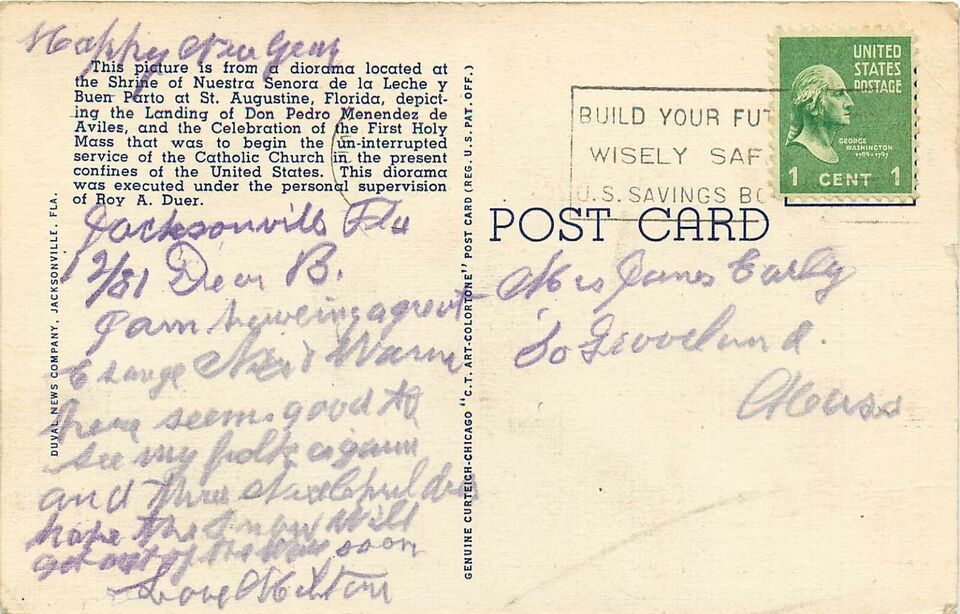 Happy New Year
This picture is from a diorama located at
the Shrine of Nuestra Senora de la Leche y
Buen Parto at St. Augustine, Florida, depict-
ing the Landing of Don Pedro Menendez de
Aviles, and the Celebration of the First Holy
Mass that was to begin the un-interrupted
service of the Catholic Church in the present
confines of the United States. This diorama
was executed under the personal supervision
of Roy A. Duer.
Jacksonville Fla
12/31 Dear B.
I am haveing a great
change Nice & Warm
here seems good to
see my folks again
and there Children
hope the snow will
get out of the way soon
Love Milton
DUVAL NEWS COMPANY, JACKSONVILLE, FLA.
GENUINE CURTEICH-CHICAGO "C.T. ART-COLORTONE" POST CARD (REG. U.S. PAT. OFF.)
BUILD YOUR FUT
WISELY SAF
U.S. SAVINGS BO
UNITED
STATES
POSTAGE
GEORGE
WASHINGTON
1789-1797
1 CENT 1
POST CARD
Mrs James Early
So Groveland.
Mass